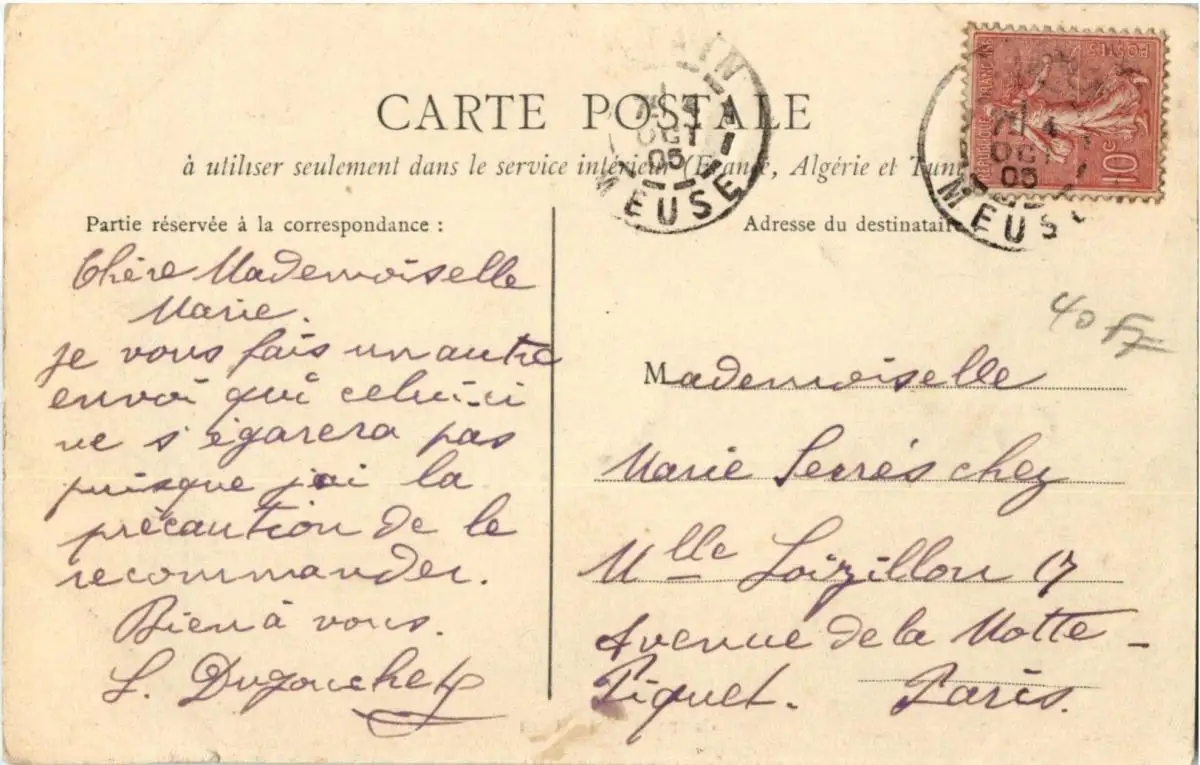 CARTE POSTALE
à utiliser seulement dans le service intérieur (France, Algérie et Tuni
Partie réservée à la correspondance :
Chère Mademoiselle
Marie.
je vous fais un autre
envoi qui celui-ci
ne s'égarera pas
puisque j'ai la
précaution de le
recommander.
Bien à vous.
L. Dugouchet
Adresse du destinataire
Mademoiselle
Marie Serrés chez
Mlle Loizillon 17
Avenue de la Motte-
Piquet. Paris.
OCT
05
MEUSE
OCT
05
MEUSE
RÉPUBLIQUE FRANÇAISE
POSTES
10c
40 Fr